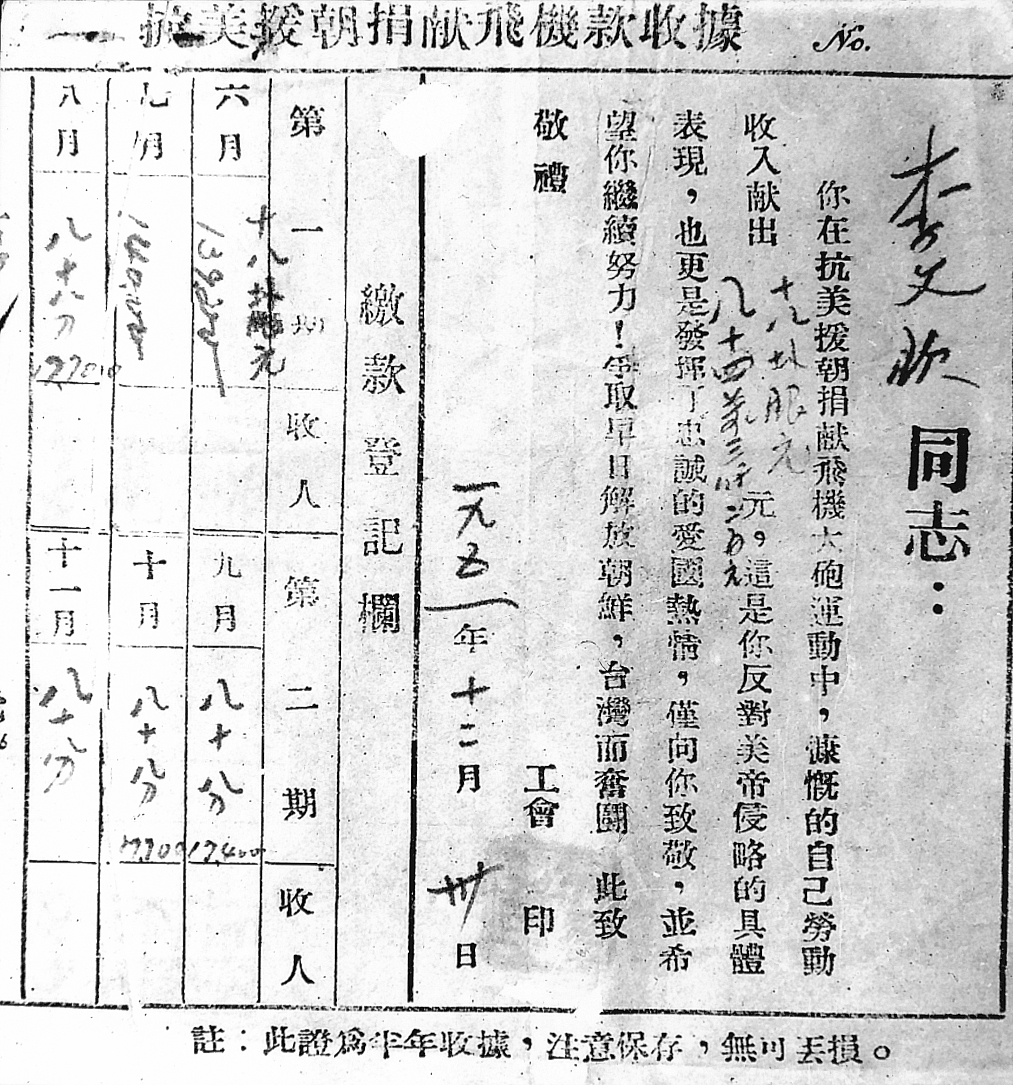 抗美援朝捐献飛機款收據
No.
李文欣 同志：
你在抗美援朝捐献飛機大砲運動中，慷慨的自己勞動
收入献出 十八扑服元 元。這是你反對美帝侵略的具體
八十四萬三仟二百元
表現，也更是發揮了忠誠的愛國熱情，僅向你致敬，並希
望你繼續努力！爭取早日解放朝鮮，台灣而奮鬭 此致
敬禮
工會 印
一九五一年十二月卅日
繳款登記欄
第一期 收人 第二期 收人
六月 十八扑服元
九月 八十八分 17400
七月
十月 八十八分 17700
八月 八十八分 17700
十一月 八十八分
註：此證爲半年收據，注意保存，無可丟損。